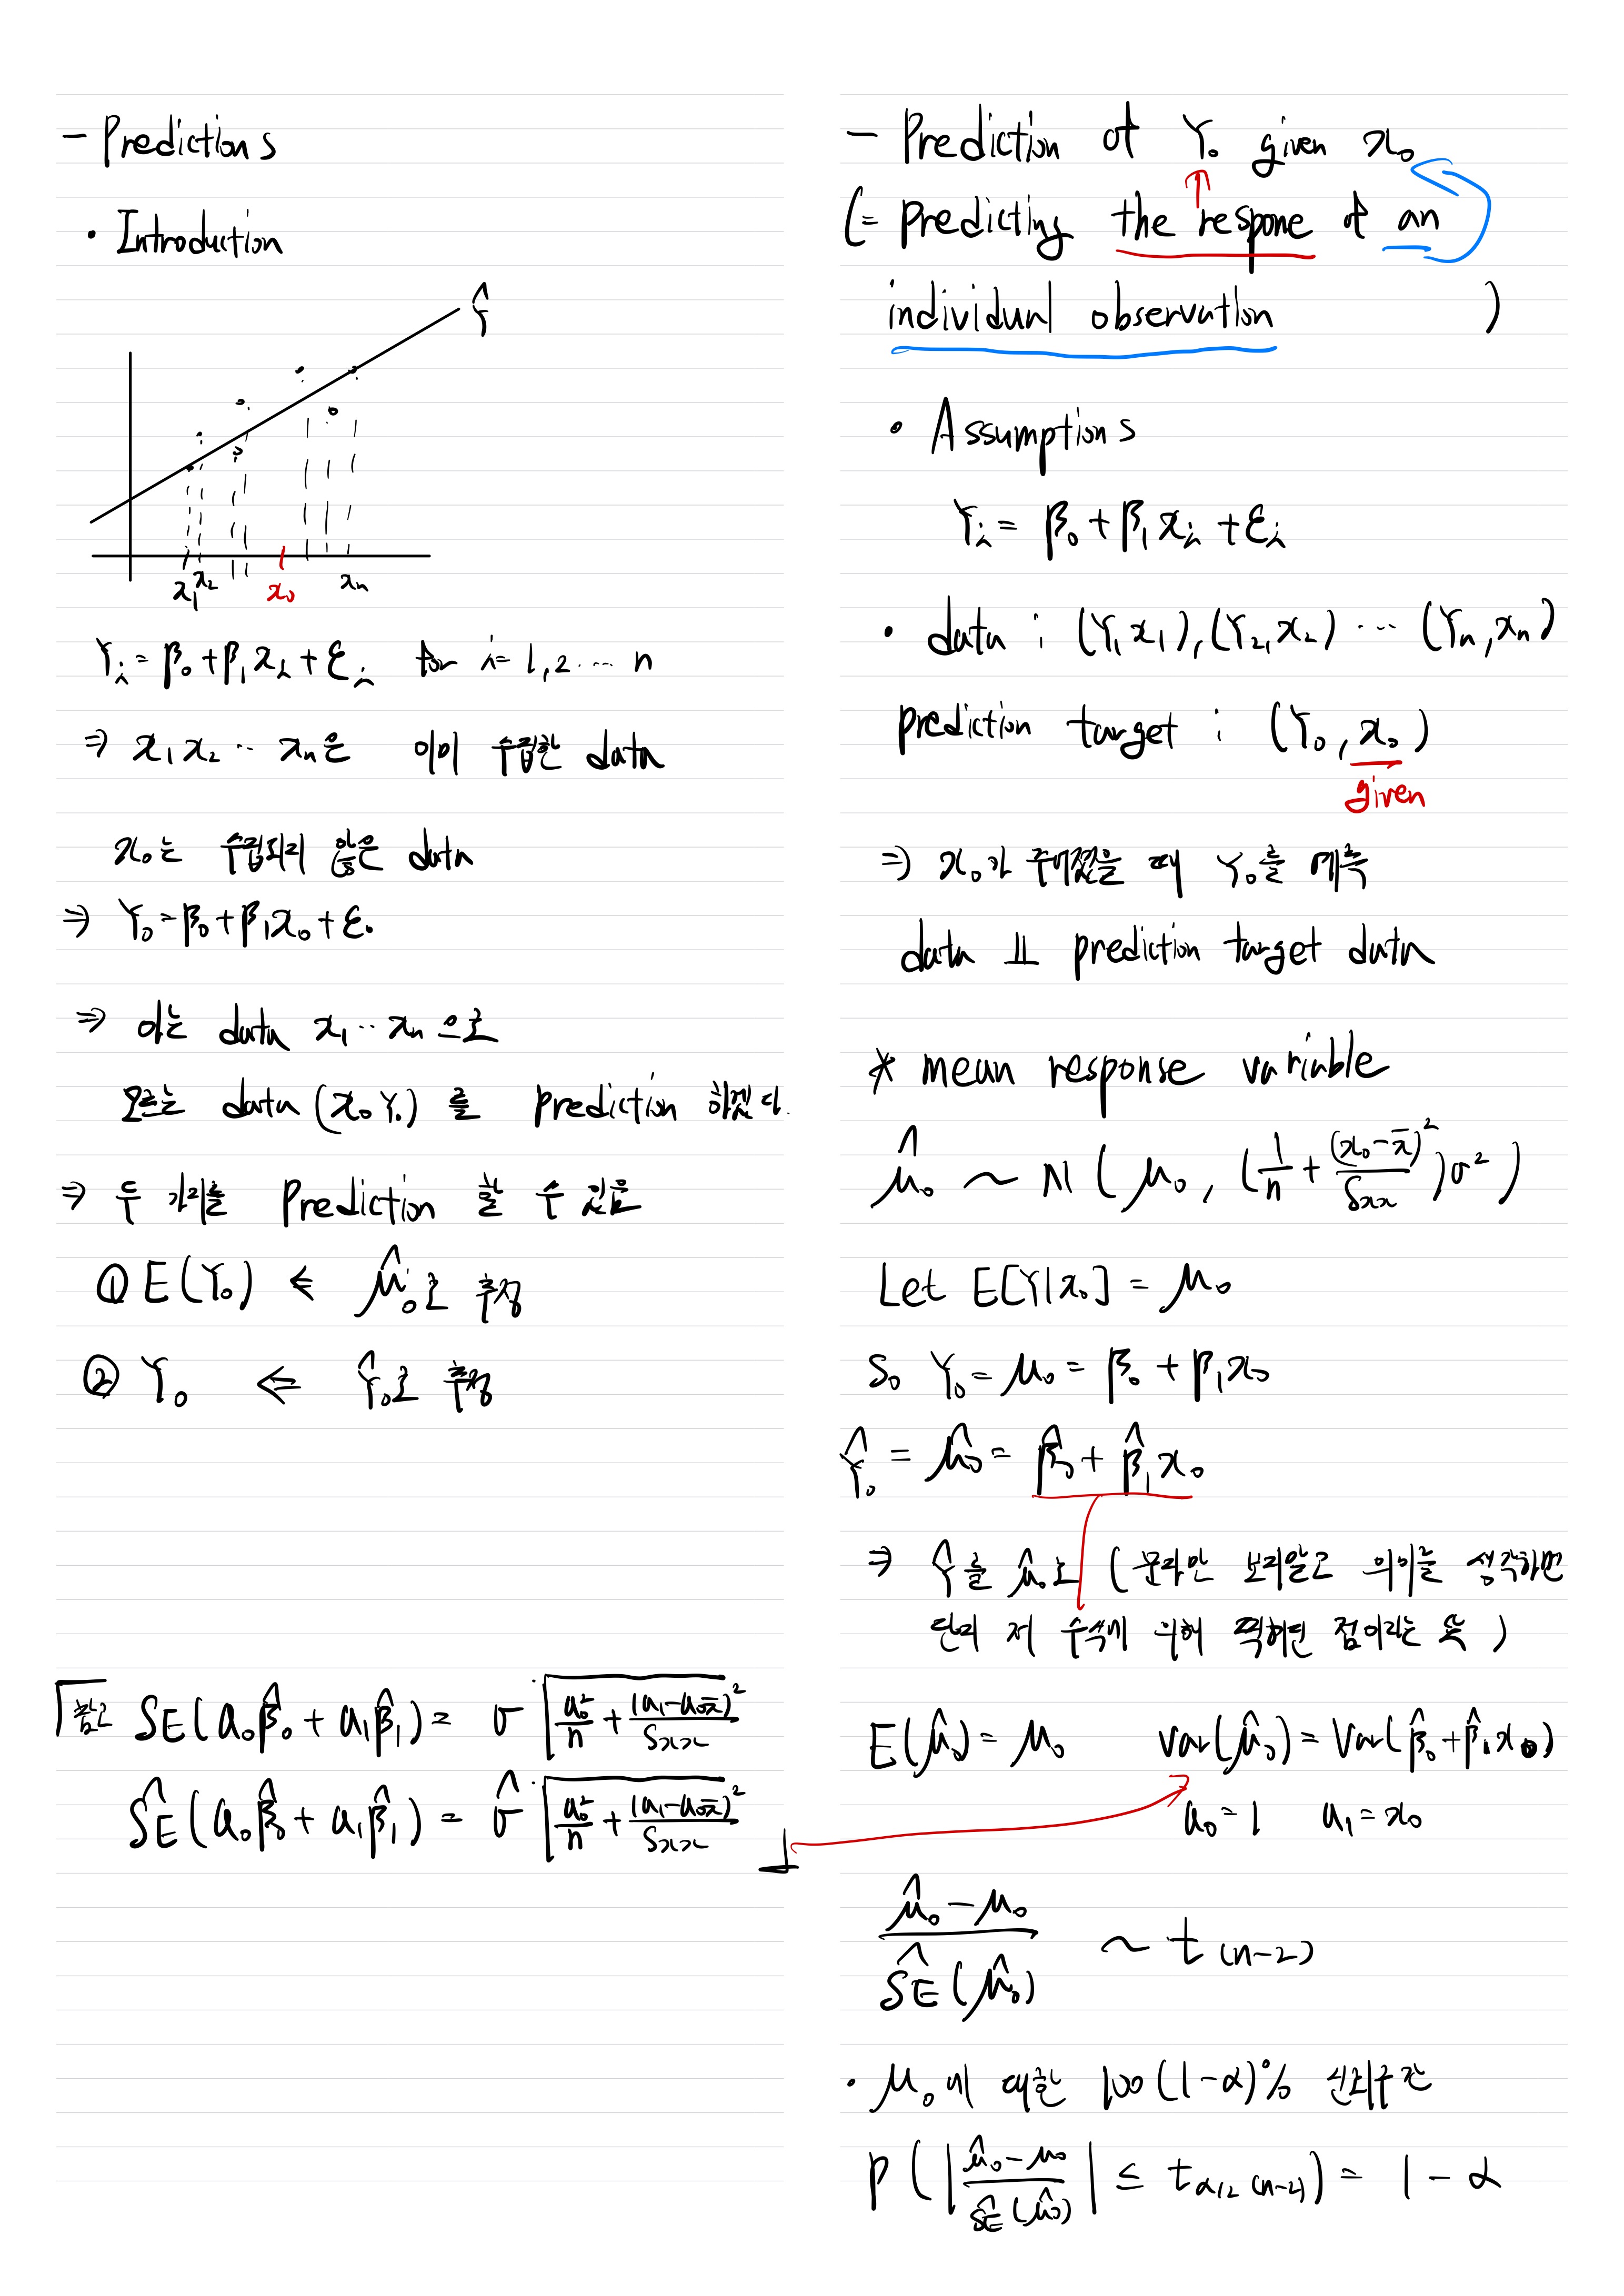 - Predictions
• Introduction
Ŷ
x₁ x₂ x₀ xₙ
Yᵢ = β₀ + β₁xᵢ + εᵢ for i = 1, 2 ··· n
⇒ x₁ x₂ ·· xₙ은 이미 수집한 data
x₀는 수집되지 않은 data
⇒ Y₀ = β₀ + β₁x₀ + ε₀
⇒ 아는 data x₁ ·· xₙ 으로
모르는 data (x₀ Y₀) 를 prediction 하겠다.
⇒ 두 가지를 Prediction 할 수 있음
① E(Y₀) ⇐ μ̂₀로 추정
② Y₀ ⇐ Ŷ₀로 추정
참고 SE(a₀β̂₀ + a₁β̂₁) = σ √(a₀²/n + (a₁ - a₀x̄)²/Sxx)
ŜE(a₀β̂₀ + a₁β̂₁) = σ̂ √(a₀²/n + (a₁ - a₀x̄)²/Sxx)
- Prediction of Y₀ given x₀
(= predicting the respone of an
individual observation )
• Assumptions
Yᵢ = β₀ + β₁xᵢ + εᵢ
• data : (Y₁ x₁), (Y₂, x₂) ··· (Yₙ, xₙ)
prediction target : (Y₀, x₀)
given
⇒ x₀가 주어졌을 때 Y₀를 예측
data ⫫ prediction target data
* mean response variable
μ̂₀ ~ N (μ₀, (1/n + (x₀ - x̄)²/Sxx)σ²)
Let E[Y|x₀] = μ₀
So Y₀ = μ₀ = β₀ + β₁x₀
Ŷ₀ = μ̂₀ = β̂₀ + β̂₁x₀
⇒ Ŷ를 μ̂₀로 (문자만 보지말고 의미를 생각하면
단지 저 수식에 의해 찍히는 점이라는 뜻)
E(μ̂₀) = μ₀ Var(μ̂₀) = Var(β̂₀ + β̂₁x₀)
a₀ = 1 a₁ = x₀
(μ̂₀ - μ₀)/ŜE(μ̂₀) ~ t₍ₙ₋₂₎
• μ₀에 대한 100(1-α)% 신뢰구간
P(|(μ̂₀ - μ₀)/ŜE(μ̂₀)| ≤ t_α/2 (n-2)) = 1 - α